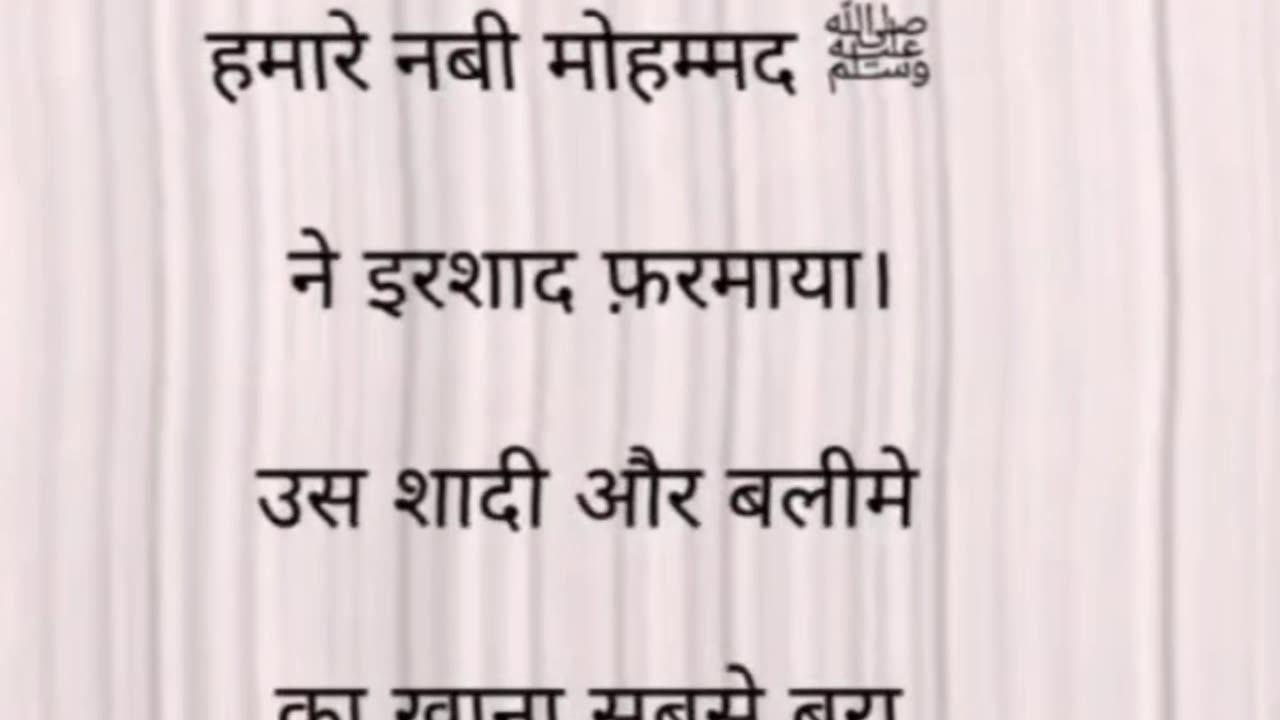 हमारे नबी मोहम्मद ﷺ
ने इरशाद फ़रमाया।
उस शादी और बलीमे
का खाना सबसे